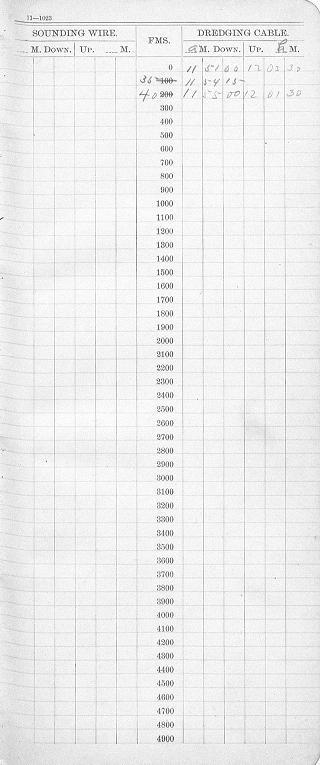 11—1023
SOUNDING WIRE. FMS. DREDGING CABLE.
M. DOWN. UP. M. a M. DOWN. UP. p M.
0 11 51 00 12 03 30
35 100 11 54 15
40 200 11 55 00 12 01 30
300
400
500
600
700
800
900
1000
1100
1200
1300
1400
1500
1600
1700
1800
1900
2000
2100
2200
2300
2400
2500
2600
2700
2800
2900
3000
3100
3200
3300
3400
3500
3600
3700
3800
3900
4000
4100
4200
4300
4400
4500
4600
4700
4800
4900